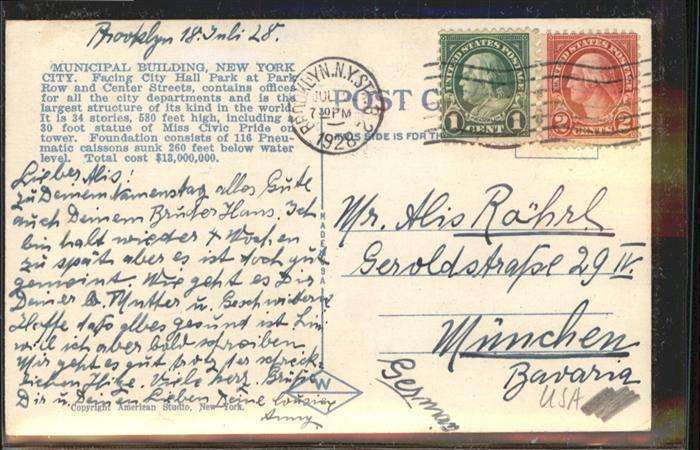 Brooklyn 18. Juli 28.
MUNICIPAL BUILDING, NEW YORK
CITY. Facing City Hall Park at Park
Row and Center Streets, contains offices
for all the city departments and is the
largest structure of its kind in the world.
It is 34 stories, 580 feet high, including a
30 foot statue of Miss Civic Pride on
tower. Foundation consists of 116 Pneu-
matic caissons sunk 260 feet below water
level. Total cost $13,000,000.
Lieber Alis!
zu Deinem Namenstag alles Gute
auch Deinem Bruder Hans. Ich
bin halt wieder 4 Wochen
zu spät aber es ist doch gut
gemeint. Wie geht es Dir
Deiner lb. Mutter u. Geschwister
Hoffe daß alles gesund ist
will ich aber bald schreiben
Mir geht es gut trotz der schreck-
lichen Hitze. Viele herz. Grüße
Dir u. Deinen Lieben Deine cousine
Anny
Copyright American Studio, New York.
BROOKLYN, N.Y.
JUL
7 30 PM
1928
POST C
THIS SIDE IS FOR TH
UNITED STATES POSTAGE
1 CENT 1
UNITED STATES POSTAGE
2 CENTS 2
MADE U.S.A.
W
Mr. Alis Röhrl
Geroldstraße 29 IV.
München
Bavaria
Germany
USA